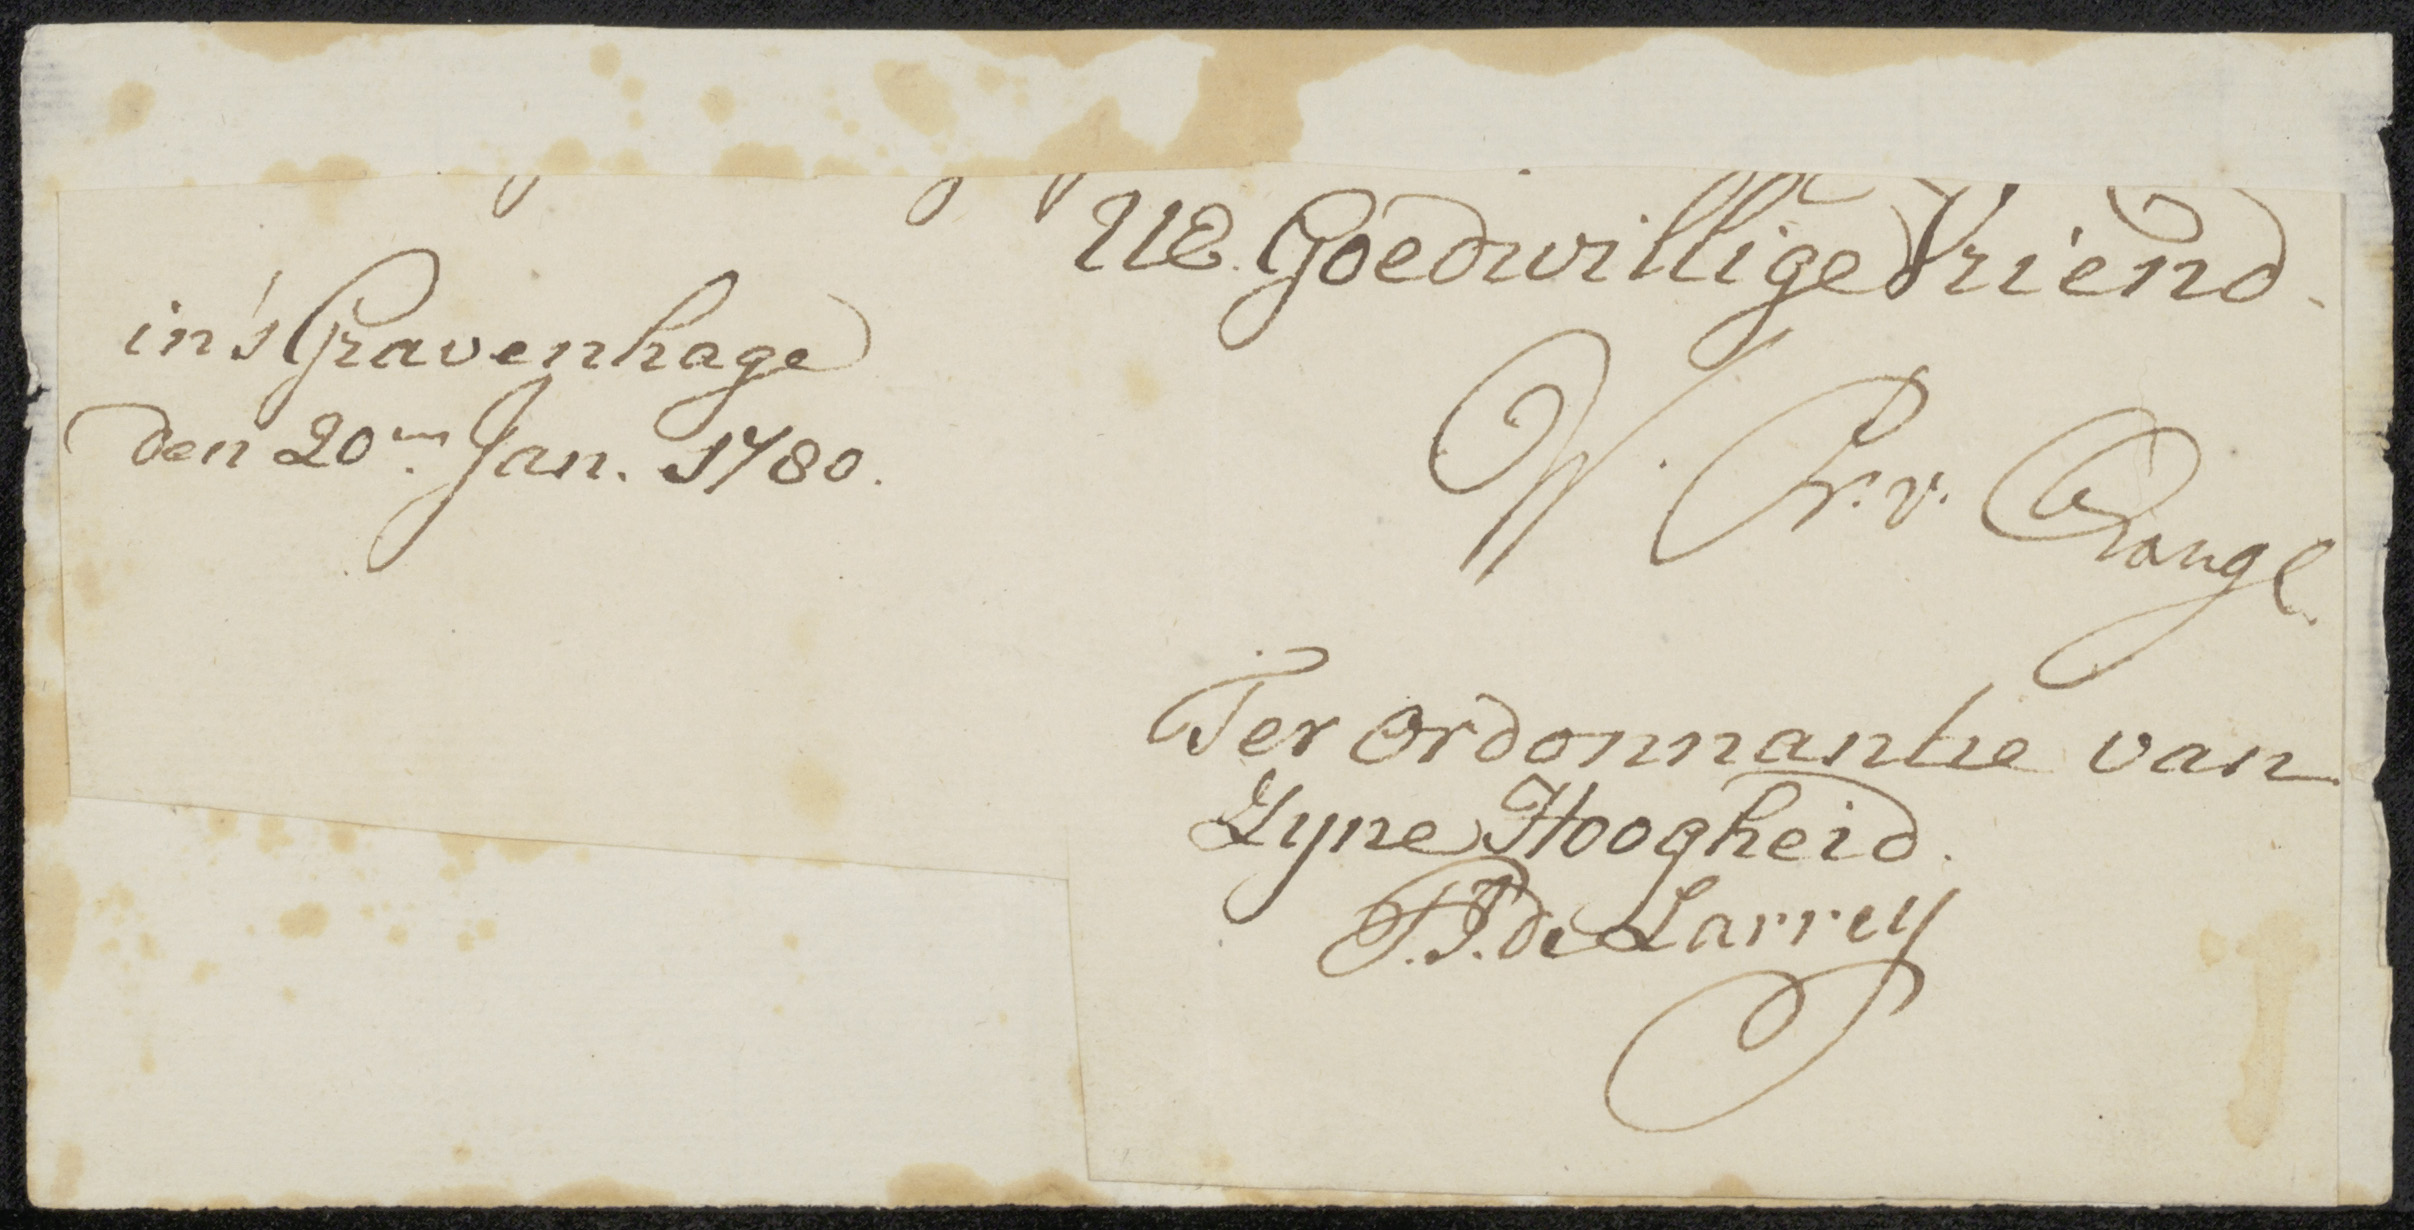 UE. Goedwillige Vriend.
in 's Gravenhage
den 20en Jan. 1780.
W. Pr. v. Orange.
Ter Ordonnantie van
Zyne Hoogheid.
T. J. de Larrey